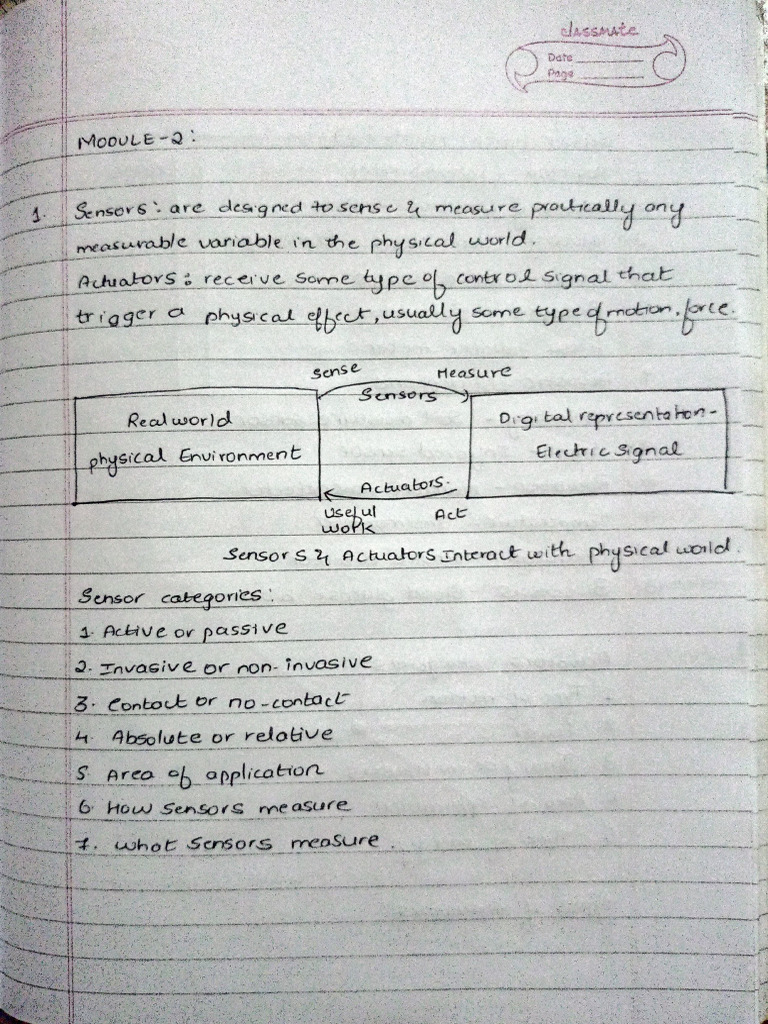 classmate
Date
Page
MODULE-2:
1. Sensors: are designed to sense & measure practically any
measurable variable in the physical world.
Actuators: receive some type of control signal that
trigger a physical effect, usually some type of motion, force.
Sense Measure
Sensors
Real world
physical Environment
Digital representation-
Electric Signal
Actuators.
Useful Act
work
Sensors & Actuators Interact with physical world.
Sensor categories:
1. Active or passive
2. Invasive or non-invasive
3. Contact or no-contact
4. Absolute or relative
5. Area of application
6. How sensors measure
7. What sensors measure.